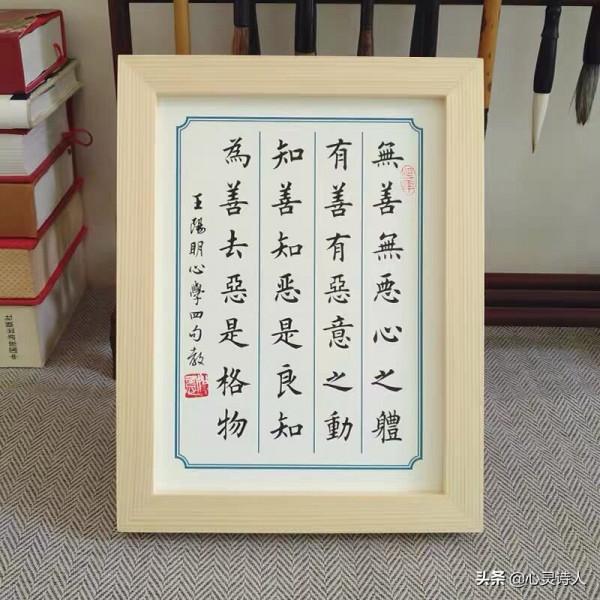 無善無悪心之體
有善有惡意之動
知善知悪是良知
為善去惡是格物
王陽明心學四句教
头条 @心灵诗人